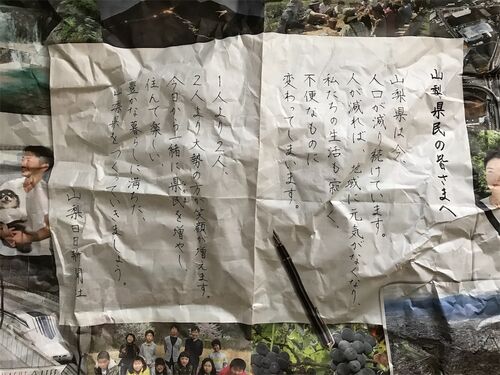 山梨県民の皆さまへ
山梨県は、今、
人口が減り続けています。
人が減れば、地域に元気がなくなり、
私たちの生活も寂しく、
不便なものに
変わってしまいます。
1人より2人、
2人より大勢の方が笑顔が増えます。
今日から一緒に県民を増やし、
住んで楽しい、
豊かな暮らしに満ちた、
山梨県をつくっていきましょう。
山梨日日新聞社